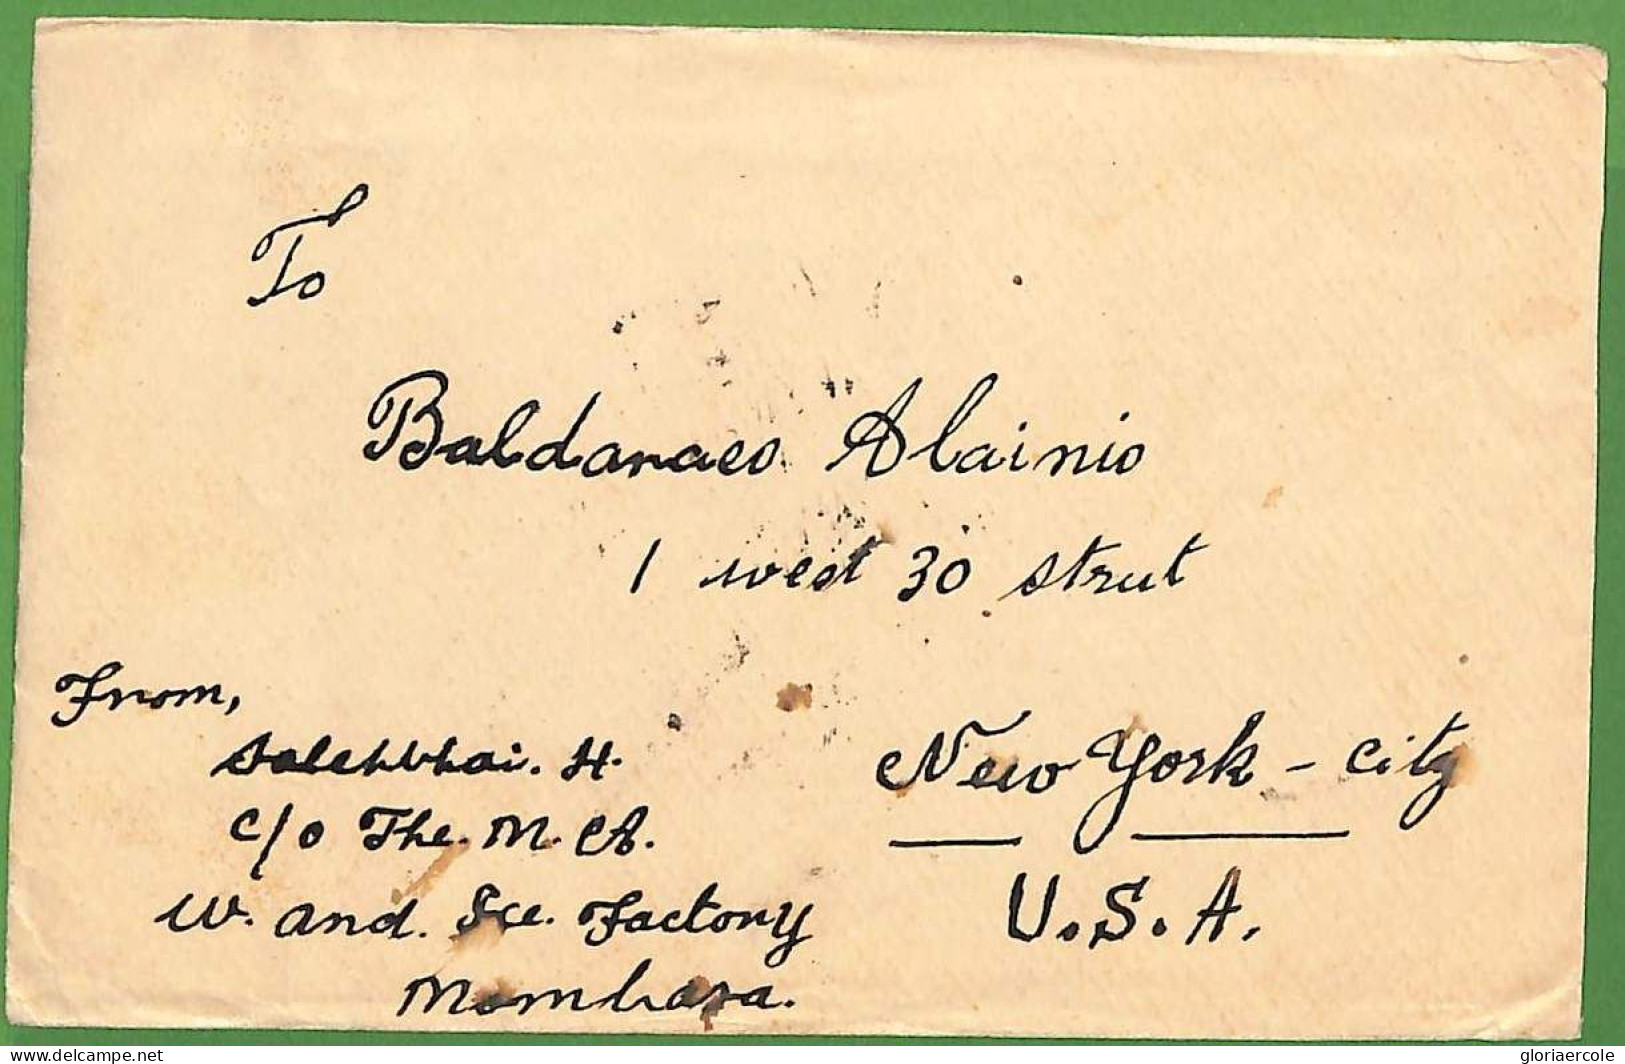 To
Baldaraeo Alainio
1 west 30 strut
From,
Salehbhai. H.
c/o The. M. A.
W. and. Ice. Factory
Mombasa.
New York - city
U.S.A.
delcampe.net
gloriaercole